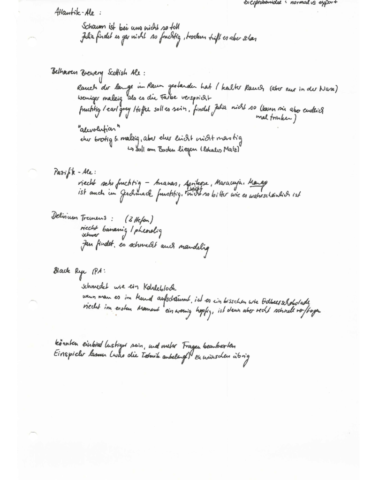 Atlantik-Ale:
Schaum ist bei uns nicht so toll
Julia findet es gar nicht so fruchtig, trotzdem
Belhaven Brewery Scottish Ale:
Rauch der lange im Raum gestanden hat / kalter Rauch (aber nur in der Nase)
weniger malzig als es die Farbe verspricht
fruchtig / soll es sein, findet Julia nicht so (kann sie aber endlich
mal trinken)
"
eher brotig & malzig, aber eher leicht nicht mastig
soll am Boden liegen (Malz)
Pazifik-Ale:
riecht sehr fruchtig - Ananas, Aprikose, Maracuja, Mango
ist auch im Geschmack fruchtig, nicht so bitter wie es wahrscheinlich ist
Delirium Tremens: (3 Hefen)
riecht bananig / phenolig
schmeckt auch mandelig
Black Rye IPA:
schmeckt wie ein
wenn man es im Mund aufschäumt, ist es ein bisschen wie
riecht im ersten Moment ein wenig hopfig, ist dann aber recht schnell
könnten lustiger sein, und mehr Fragen beantworten
Einspieler lassen (was die Technik anbelangt) zu wünschen übrig